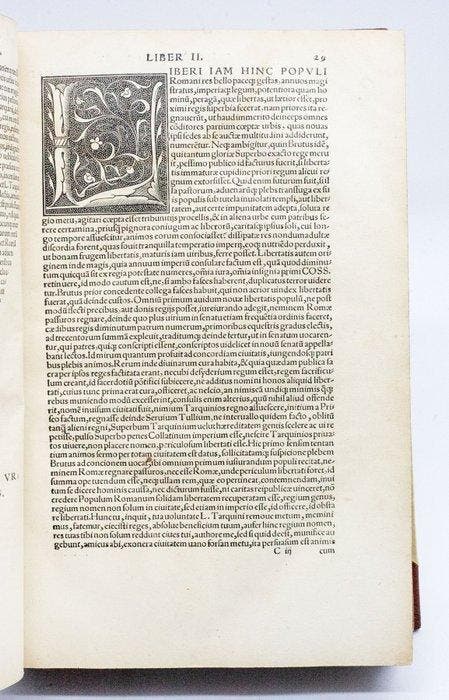 LIBER II. 29
LIBERI IAM HINC POPVLI
Romani res bello paceq; gestas, annuos magi
stratus, imperiaq; legum, potentiora quam ho
minũ, peragã, quæ libertas, ut lætior esset, pro
ximi regis superbia fecerat. nam priores ita re
gnauerũt, ut haud immerito deinceps omnes
cõditores partium certe urbis, quas nouas
ipsi sedes ab se auctæ multitudini addiderunt,
numerẽtur. Neq; ambigitur, quin Brutus idẽ,
qui tantum gloriæ Superbo exacto rege meru
it, pessimo publico id facturus fuerit, si liberta
tis immaturæ cupidine priori regum alicui re
gnum extorsisset. Quid enim futurum fuit, si il
la pastorum, aduenarũq; plebs transfuga ex su
is populis sub tutela inuiolati templi, aut liber/
tatem, aut certe impunitatem adepta, soluta re
gio metu, agitari cœpta esset tribunitijs procellis, & in aliena urbe cum patribus se-
rere certamina, priusq; pignora coniugum ac liberorũ, caritasq; ipsius soli, cui lon
go tempore assuescitur, animos eorum consociasset: dissipatæ res nondum adultæ
discordia forent, quas fouit tranquilla temperatio imperij, eoq; nutriẽdo perduxit,
ut bonam frugem libertatis, maturis iam uiribus, ferre posset. Libertatis autem ori
ginem inde magis, quia annuum imperiũ consulare factum est, quã quod diminu
tum quicquã sit ex regia potestate numeres, omnia iura, omnia insignia primi COSS.
tenuere, id modo cautum est, ne si ambo fasces haberent, duplicatus terror uidere
tur. Brutus prior concedente collega fasces habuit, qui non acrior uindex libertati
fuerat, quã deinde custos. Omniũ primum auidum nouæ libertatis populũ, ne post
modũ flecti precibus, aut donis regijs posset, iureiurando adegit, neminem Romæ
passuros regnare, deinde quo plus uirium in senatu etiam frequẽtia ordinis faceret,
cædibus regis diminutum patrum numerum, primoribus equestris gradus electis,
ad trecentorum summã expleuit, traditumq; deinde fertur, ut in senatum uocaren-
tur, qui patres, quiq; conscripti essent, conscriptos uidelicet in nouũ senatũ appella/
bant lectos. Id mirum quantum profuit ad concordiam ciuitatis, iungendosq; patri
bus plebis animos. Rerum inde diuinarum cura habita, & quia quædam publica sa
cra per ipsos reges factitata erant, necubi desyderium regum esset, regem sacrificu-
lum creant, id sacerdotiũ põtifici subijcere, ne additus nomini honos aliquid liber-
tati, cuius tunc prima erat cura, officeret, ac nescio, an nimis eã undiq; minimisq; re
bus muniendo modũ excesserint. Consulis enim alterius, quũ nihil aliud offende
rit, nomẽ inuisum ciuitati fuit, nimium Tarquinios regno assuescere, initium à Pri
sco factum, regnasse deinde Seruium Tullium, ne interuallo quidem facto, oblitũ
tanq; alieni regni, Superbum Tarquinium uelut hæreditatem gentis scelere ac ui re
petisse, pulso Superbo penes Collatinum imperium esse, nescire Tarquinios priua-
tos uiuere, non placere nomen, periculosum libertati esse. Hic primo sensim tentan
tium animos sermo per totam ciuitatem est datus, sollicitamq; suspicione plebem
Brutus ad concionem uocat, ibi omnium primum iusiurandum populi recitat, ne-
minem Romæ regnare passuros, nec esse Romæ, unde periculum libertati foret, id
summa ope tuendum esse, neq; ullam rem, quæ eo pertineat, contemnendam, inui
tum se dicere hominis causa, nec dicturum fuisse, ni caritas reipublicæ uinceret, nõ
credere Populum Romanum solidam libertatem recuperatam esse, regium genus,
regium nomen non solum in ciuitate, sed etiam in imperio esse, id officere, id obsta
re libertati. Hunc tu, inquit, tua uoluntate L. Tarquini remoue metum, memini
mus, fatemur, eiecisti reges, absolue beneficium tuum, aufer hinc regium nomen,
res tuas tibi non solum reddent ciues tui, authore me, sed si quid deest, munifice au
gebunt, amicus abi, exonera ciuitatem uano forsan metu, ita persuasum est animis
C iij cum